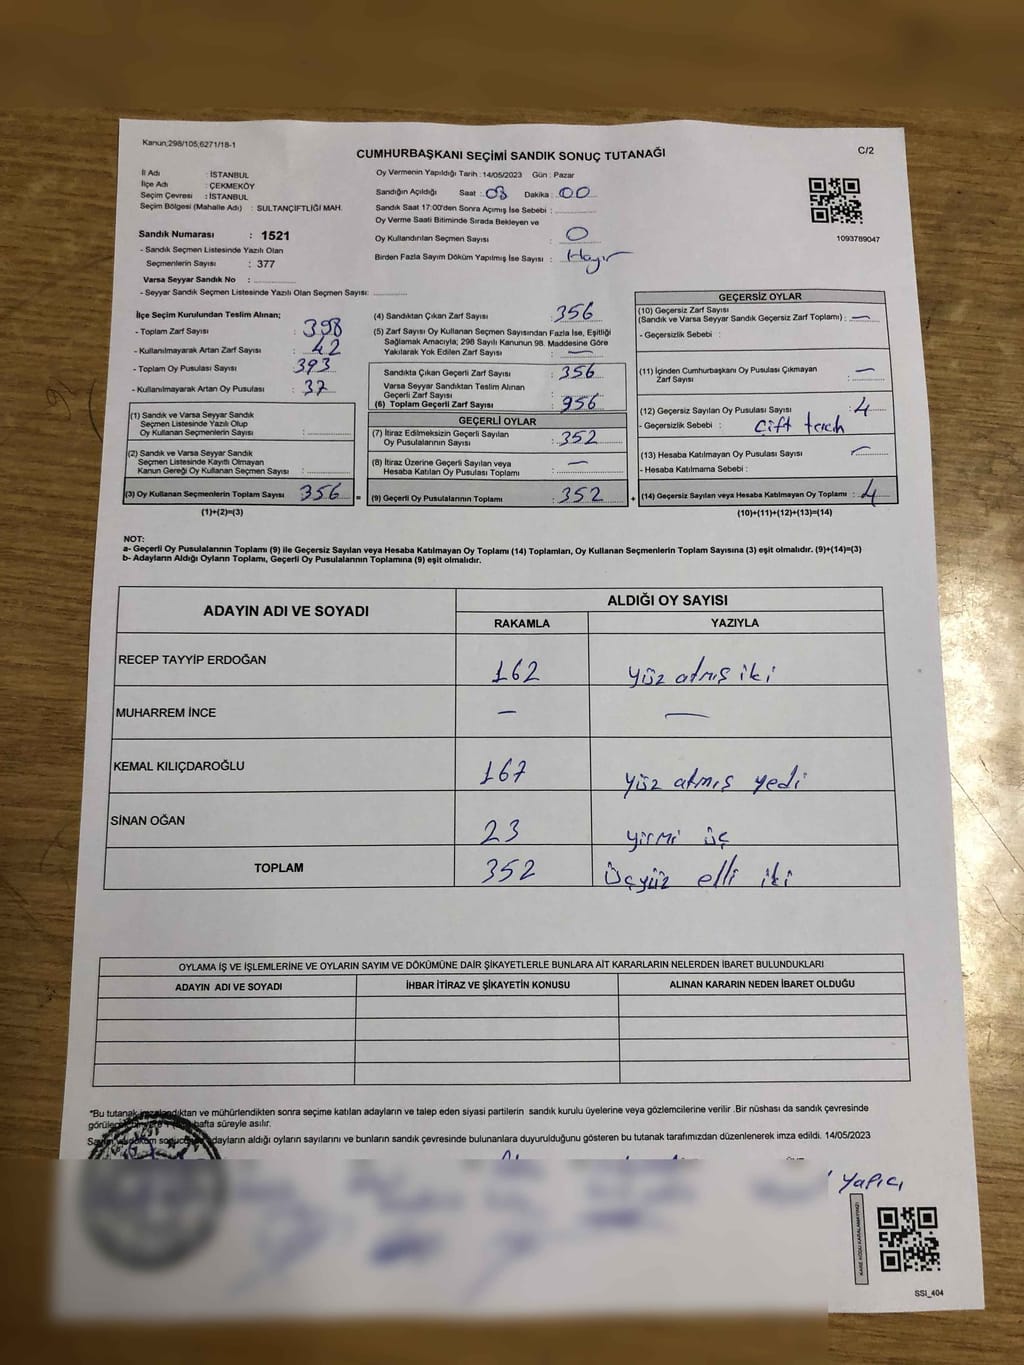 Kanun;298/105,6271/18-1
CUMHURBAŞKANI SEÇİMİ SANDIK SONUÇ TUTANAĞI
C/2
İl Adı : İSTANBUL
İlçe Adı : ÇEKMEKÖY
Seçim Çevresi : İSTANBUL
Seçim Bölgesi (Mahalle Adı) : SULTANÇİFTLİĞİ MAH.
Sandık Numarası : 1521
- Sandık Seçmen Listesinde Yazılı Olan
Seçmenlerin Sayısı : 377
Varsa Seyyar Sandık No :
- Seyyar Sandık Seçmen Listesinde Yazılı Olan Seçmen Sayısı:
Oy Vermenin Yapıldığı Tarih : 14/05/2023 Gün : Pazar
Sandığın Açıldığı Saat : 08 Dakika : 00
Sandık Saat 17:00'den Sonra Açımış İse Sebebi :
Oy Verme Saati Bitiminde Sırada Bekleyen ve
Oy Kullandırılan Seçmen Sayısı : 0
Birden Fazla Sayım Döküm Yapılmış İse Sayısı : Hayır
1093789047
İlçe Seçim Kurulundan Teslim Alınan;
- Toplam Zarf Sayısı : 398
- Kullanılmayarak Artan Zarf Sayısı : 42
- Toplam Oy Pusulası Sayısı : 393
- Kullanılmayarak Artan Oy Pusulası : 37
(1) Sandık ve Varsa Seyyar Sandık
Seçmen Listesinde Yazılı Olup
Oy Kullanan Seçmenlerin Sayısı :
(2) Sandık ve Varsa Seyyar Sandık
Seçmen Listesinde Kayıtlı Olmayan
Kanun Gereği Oy Kullanan Seçmen Sayısı :
(3) Oy Kullanan Seçmenlerin Toplam Sayısı : 356 =
(1)+(2)=(3)
(4) Sandıktan Çıkan Zarf Sayısı : 356
(5) Zarf Sayısı Oy Kullanan Seçmen Sayısından Fazla İse, Eşitliği
Sağlamak Amacıyla; 298 Sayılı Kanunun 98. Maddesine Göre
Yakılarak Yok Edilen Zarf Sayısı : —
Sandıkta Çıkan Geçerli Zarf Sayısı : 356
Varsa Seyyar Sandıktan Teslim Alınan
Geçerli Zarf Sayısı
(6) Toplam Geçerli Zarf Sayısı : 956
GEÇERLİ OYLAR
(7) İtiraz Edilmeksizin Geçerli Sayılan
Oy Pusulalarının Sayısı : 352
(8) İtiraz Üzerine Geçerli Sayılan veya
Hesaba Katılan Oy Pusulası Toplamı : —
(9) Geçerli Oy Pusulalarının Toplamı : 352 +
GEÇERSİZ OYLAR
(10) Geçersiz Zarf Sayısı
(Sandık ve Varsa Seyyar Sandık Geçersiz Zarf Toplamı) : —
- Geçersizlik Sebebi :
(11) İçinden Cumhurbaşkanı Oy Pusulası Çıkmayan
Zarf Sayısı : —
(12) Geçersiz Sayılan Oy Pusulası Sayısı : 4
- Geçersizlik Sebebi : Çift tercih
(13) Hesaba Katılmayan Oy Pusulası Sayısı : —
- Hesaba Katılmama Sebebi :
(14) Geçersiz Sayılan veya Hesaba Katılmayan Oy Toplamı : 4
(10)+(11)+(12)+(13)=(14)
NOT:
a- Geçerli Oy Pusulalarının Toplamı (9) ile Geçersiz Sayılan veya Hesaba Katılmayan Oy Toplamı (14) Toplamları, Oy Kullanan Seçmenlerin Toplam Sayısına (3) eşit olmalıdır. (9)+(14)=(3)
b- Adayların Aldığı Oyların Toplamı, Geçerli Oy Pusulalarının Toplamına (9) eşit olmalıdır.
ADAYIN ADI VE SOYADI
ALDIĞI OY SAYISI
RAKAMLA YAZIYLA
RECEP TAYYİP ERDOĞAN 162 Yüz atmış iki
MUHARREM İNCE — —
KEMAL KILIÇDAROĞLU 167 Yüz atmış yedi
SİNAN OĞAN 23 Yirmi üç
TOPLAM 352 Üçyüz elli iki
OYLAMA İŞ VE İŞLEMLERİNE VE OYLARIN SAYIM VE DÖKÜMÜNE DAİR ŞİKAYETLERLE BUNLARA AİT KARARLARIN NELERDEN İBARET BULUNDUKLARI
ADAYIN ADI VE SOYADI İHBAR İTİRAZ VE ŞİKAYETİN KONUSU ALINAN KARARIN NEDEN İBARET OLDUĞU
*Bu tutanak imzalandıktan ve mühürlendikten sonra seçime katılan adayların ve talep eden siyasi partilerin sandık kurulu üyelerine veya gözlemcilerine verilir .Bir nüshası da sandık çevresinde
hafta süreyle asılır.
adayların aldığı oyların sayılarını ve bunların sandık çevresinde bulunanlara duyurulduğunu gösteren bu tutanak tarafımızdan düzenlenerek imza edildi. 14/05/2023
Yapıcı
KARE KODU KARALAMAYINIZ!
SSI_404